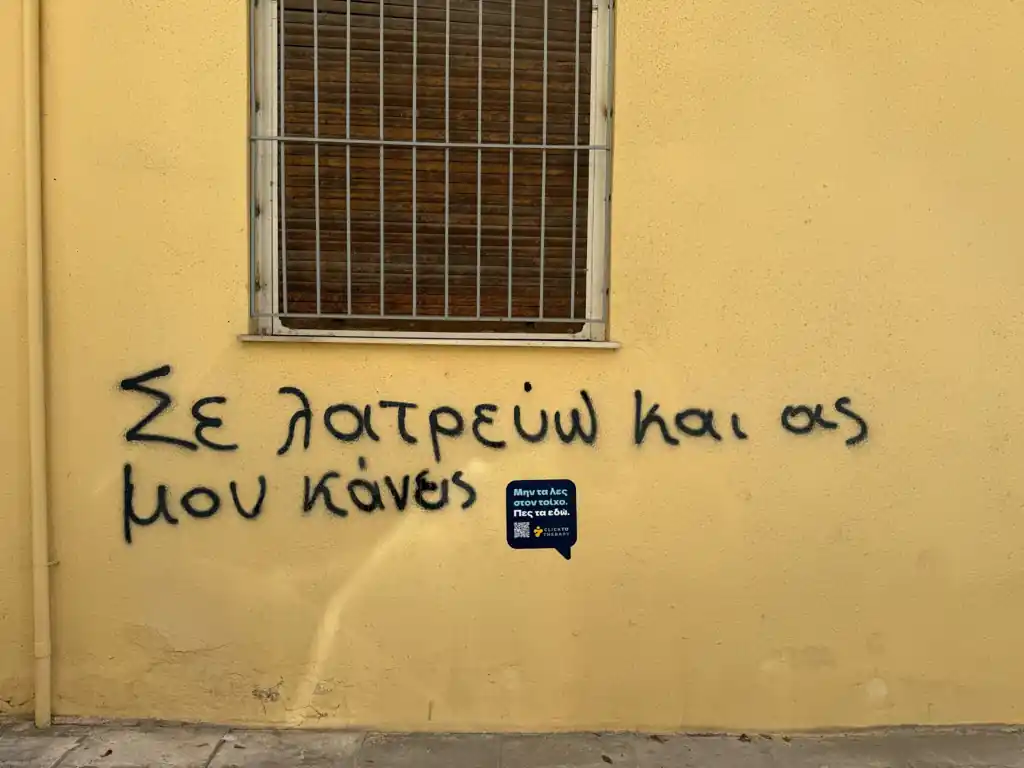 Σε λατρεύω και ας
μου κάνεις
Μην τα λες
στον τοίχο.
Πες τα εδώ.
CLICK TO
THERAPY